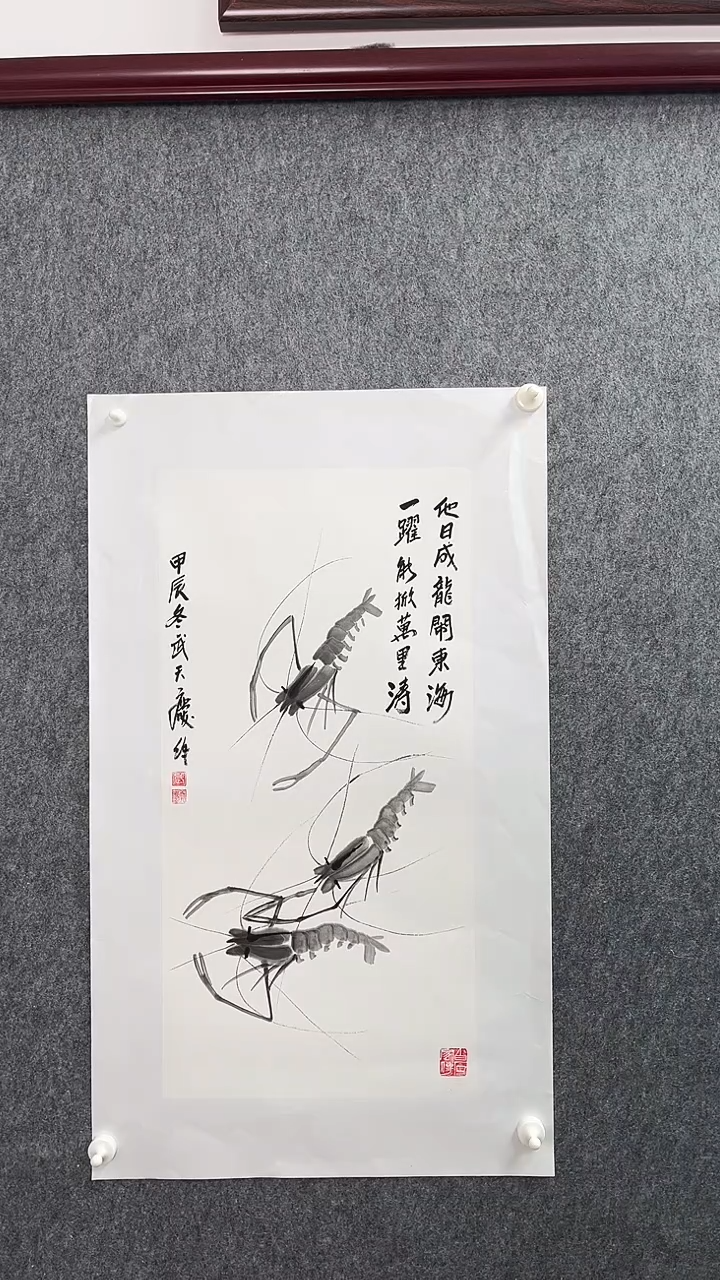 他日成龍鬧東海
一躍能掀萬里濤
甲辰冬武天慶繪